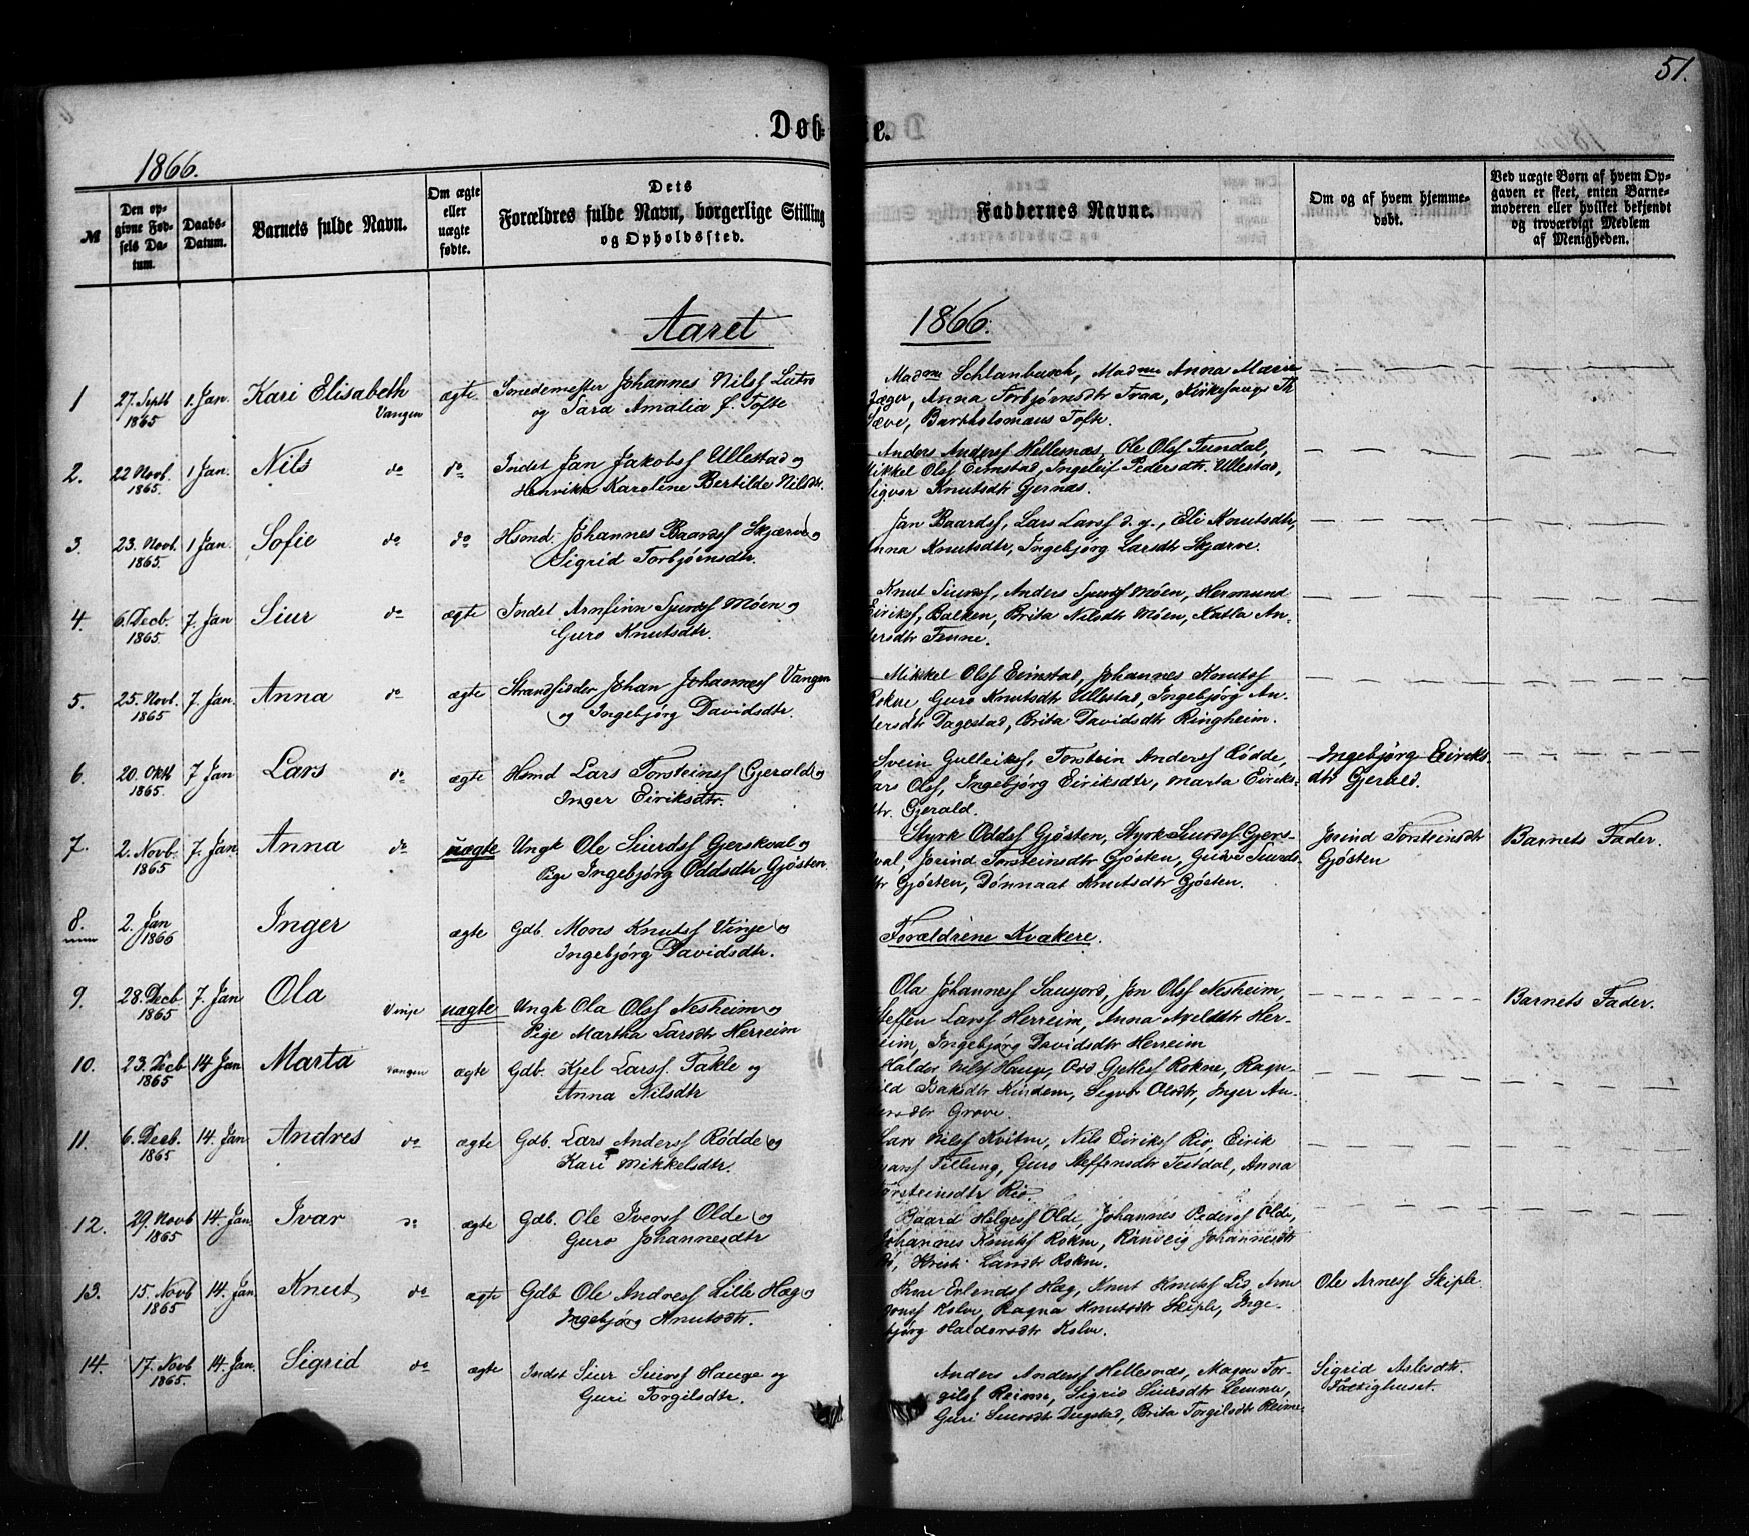 51.
Døb-
te.
1866.
№
Den op-
givne Fød-
sels Da-
tum.
Daabs-
Datum.
Barnets fulde Navn.
Om ægte
eller
uægte
fødte.
Dets
Forældres fulde Navn, borgerlige Stilling
og Opholdssted.
Faddernes Navne.
Om og af hvem hjemme-
døbt.
Ved uægte Børn af hvem Op-
gaven er skeet, enten Barne-
moderen eller hvilket bekjendt
og troværdigt Medlem
af Menigheden.
Aaret
1866.
1 27. Septb 1865 1. Jan. Kari Elisabeth Vangen ægte Smedemester Johannes Nilss
og Sara Amalia f. Tofte
Madme Madme Anna Marie
Jæger, Anna Torbjørnsdtr Traa, Kirkesanger Th
Sæve, Bartholomæus Tofte.
2. 22 Novb. 1865. 1 Jan. Nils do do Indst Jan Jakobss Ullestad og
Henrikka Karoline Bertilde Nilsdtr.
Anders Anderss Hellesnæs, Ole Olss Tundal,
Mikkel Olss Eimstad, Ingeleif Pedersdtr. Ullestad,
Sigvor Knutsdtr Gjernæs.
3. 23. Novb. 1865. 1 Jan. Sofie do do Hsmd. Johannes Baardss Skjærve og
Sigrid Torbjørnsdtr.
Jan Baardss, Lars Larss d. y., Eli Knutsdtr,
Anna Knutsdtr, Ingebjørg Larsdtr Skjærve.
4. 6. Decb. 1865. 7. Jan Siur do ægte Indst Arnfinn Sjurdss Möen og
Guro Knutsdtr.
Knut Siurss, Anders Sjurdss Möen, Hermund
Eirikss, Balken, Brita Nilsdtr Möen, Katla An-
dersdtr Tenne.
5. 25. Novb. 1865 7. Jan. Anna do ægte Strandsidder Johan Johanness Vangen
og Ingebjørg Davidsdtr.
Mikkel Olss Eimstad, Johannes Knutss
Rokne, Guro Knutsdtr Ullestad, Ingebjørg An-
dersdtr Dagestad, Brita Davidsdtr Ringheim.
6. 20. Oktb 1865. 7 Jan Lars do ægte Hsmd Lars Torsteinss Gjerald og
Inger Eiriksdtr.
Svein Gulleikss, Torstein Anderss Rödde,
Lars Olss, Ingebjørg Eiriksdtr, Marta Eiriks-
dtr. Gjerald.
Ingebjørg Eiriks-
dtr Gjerald.
7. 2. Novb. 1865 7. Jan. Anna do uægte Ungk Ole Siurds Gjerskval og
Pige Ingebjørg Oddsdtr Gjösten
Styrk Oddss Gjösten, Styrk Siurdss Gjers-
kval, Jorind Torsteinsdtr Gjösten, Gurve Siurds-
dtr Gjösten, Dönnaat Knutsdtr Gjösten.
Jorind Torsteinsdtr
Gjösten
Barnets Fader.
8. 2. Jan 1866 Inger ægte Gdb. Mons Knutss Vinje og
Ingebjørg Davidsdtr.
Forældrene Kvækere.
9. 28. Decb 1865 7. Jan Ola Vinje uægte Ungk Ola Olss Nesheim og
Pige Martha Larsdtr Herreim
Ola Johanness Saugjord, Jon Olss Nesheim,
Steffen Larss Herreim, Anna Axeldtr Her-
reim, Ingebjørg Davidsdtr Herreim
Barnets Fader.
10. 23. Decb 1865 14 Jan Marta Vangen ægte Gdb. Kjel Larss. Takle og
Anna Nilsdtr
Halder Nilss Haug, Odd Rokne, Ragn-
ild Baksdtr Kindem, Sigvor Olsdtr, Inger An-
dersdtr Grove.
11. 6. Decb. 1865 14. Jan Andres do ægte Gdb. Lars Anderss Rödde og
Kari Mikkelsdtr.
Lars Nilss Kvitne, Nils Eirikss Rio, Eirik
Tillung, Guro Steffensdtr Tesdal, Anna
Torsteinsdtr Rio.
12. 29. Novb 1865 14. Jan. Ivar do ægte Gdb. Ole Iverss Olde og
Guro Johannesdtr
Baard Helgess Olde, Johannes Pederss Olde,
Johannes Knutss Rokne, Ranveig Johannesdtr
Kristi Larsdtr Rokne.
13. 15. Novb 1865 14. Jan Knut do ægte Gdb Ole Andress Lille Hæg og
Ingebjørg Knutsdtr.
Arne Erlendss Hæg, Knut Knutss Lid, Arne
Kolve, Ragna Knutsdtr Skiple, Inge-
bjørg Haldorsdtr Kolve.
Ole Arness Skiple.
14. 17. Novb 1865. 14. Jan. Sigrid do ægte Indst Siur Siurss Hauge og
Guri Torgilsdtr.
Anders Anderss Hellesnæs, Magne Tor-
gilss Reime, Sigrid Siursdtr Lemme,
Guri Siursdtr Dugstad, Brita Torgilsdtr Reime
Sigrid Aslesdtr.
Fattighuset.